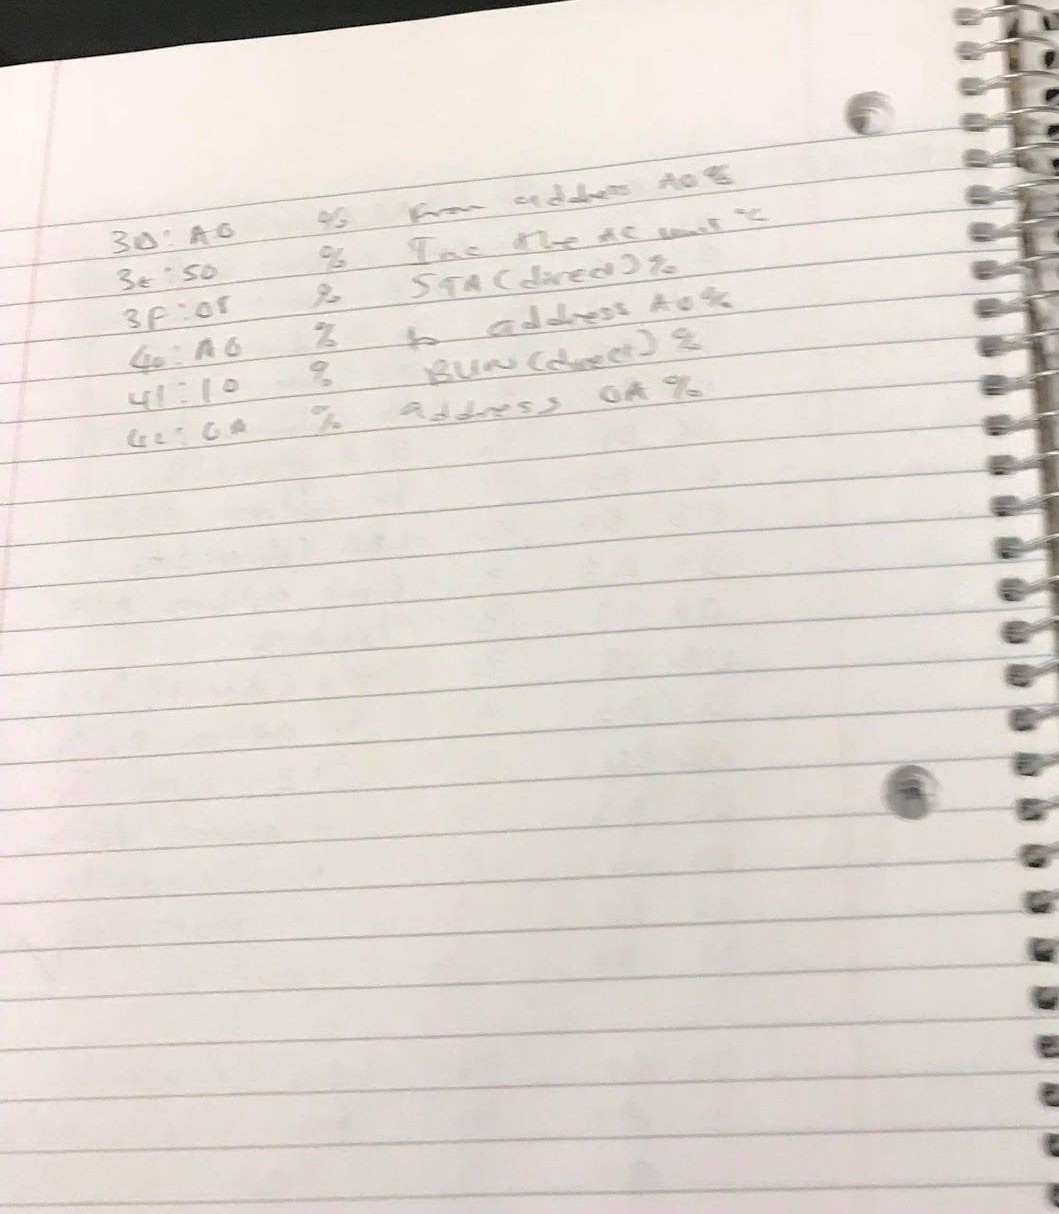 3D: A0 % from address A0 %
3E: 50 % Inc the AC unit %
3F: 08 % STA (direct) %
40: A0 % to address A0 %
41: 10 % BUN (direct) %
42: 0A % address 0A %